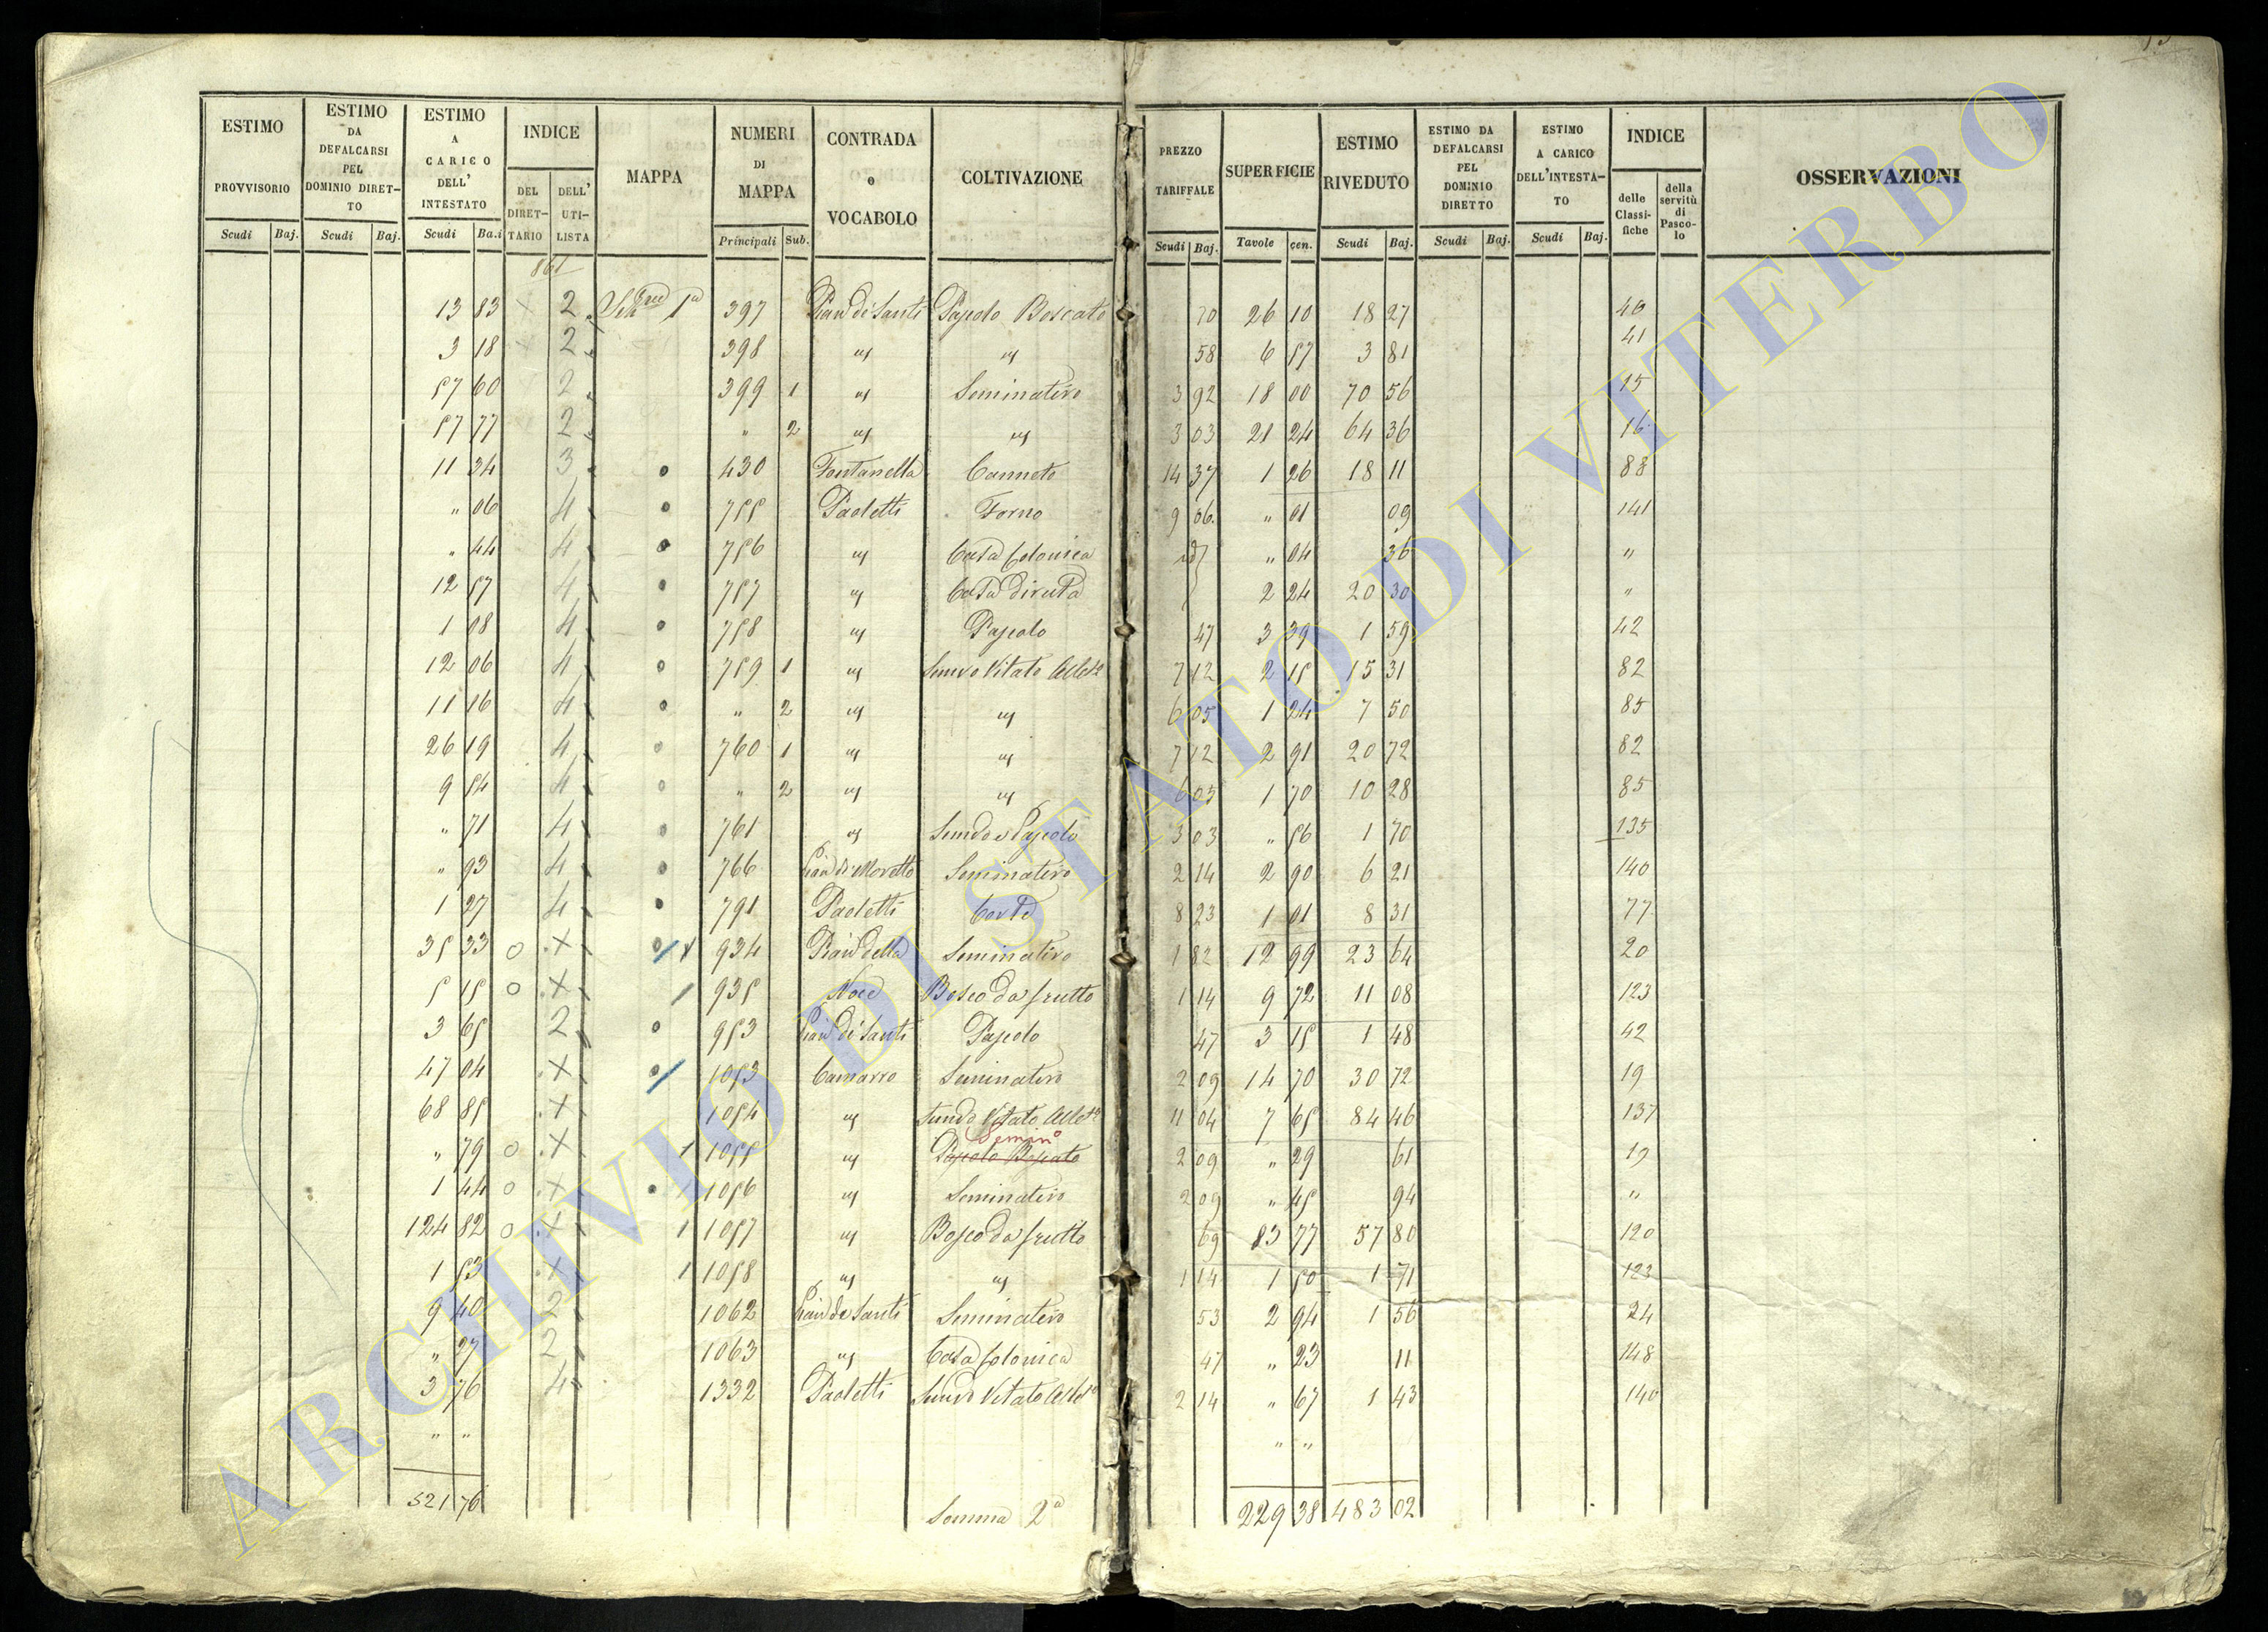 ESTIMO PROVVISORIO | ESTIMO DA DEFALCARSI PEL DOMINIO DIRETTO | ESTIMO A CARICO DELL' INTESTATO | INDICE DEL DIRETTARIO | DELL' UTILISTA | MAPPA | NUMERI DI MAPPA | CONTRADA o VOCABOLO | COLTIVAZIONE | PREZZO TARIFFALE | SUPERFICIE | ESTIMO RIVEDUTO | ESTIMO DA DEFALCARSI PEL DOMINIO DIRETTO | ESTIMO A CARICO DELL'INTESTATO | INDICE delle Classifiche | della servitù di Pascolo | OSSERVAZIONI
Scudi Baj. | Scudi Baj. | Scudi Ba.i | Principali Sub. | Scudi Baj. | Tavole cen. | Scudi Baj. | Scudi Baj. | Scudi Baj.
861
13 83 2 1a 397 Pian di Santi Pascolo Boscato 70 26 10 18 27 40
3 18 2 398 " " 58 6 57 3 81 41
57 60 2 399 1 " Seminativo 3 92 18 00 70 56 15
57 77 2 " 2 " " 3 03 21 24 64 36 16
11 34 3 430 Fontanella Canneto 14 37 1 26 18 11 88
" 06 4 755 Paoletti Forno 9 06 " 01 09 141
" 44 4 756 " Casa Colonica id " 04 36 "
12 57 4 757 " Casa diruta 2 24 20 30 "
1 08 4 758 " Pascolo 47 3 39 1 59 42
12 06 4 759 1 " Semvo Vitato 7 12 2 15 15 31 82
11 16 4 " 2 " " 6 05 1 24 7 50 85
26 19 4 760 1 " " 7 12 2 91 20 72 82
9 54 4 " 2 " " 6 05 1 70 10 28 85
" 71 4 761 " Semvo e Pascolo 3 03 " 56 1 70 135
" 93 4 766 Pian di Moretto Seminativo 2 14 2 90 6 21 140
1 27 4 791 Paoletti Corte 8 23 1 01 8 31 77
35 33 o x 934 Pian della Seminativo 1 82 12 99 23 64 20
5 15 o x 935 Noce Bosco da frutto 1 14 9 72 11 08 123
3 65 2 953 Pian di Santi Pascolo 47 3 15 1 48 42
47 04 x 1053 Camarro Seminativo 2 09 14 70 30 72 19
68 85 x 1054 " Semvo Vitato 11 04 7 65 84 46 137
Semino
" 79 o x 1 1055 " Pascolo Boscato 2 09 " 29 61 19
1 44 o x 1056 " Seminativo 2 09 " 45 94 "
124 82 o x 1 1057 " Bosco da frutto 69 83 77 57 80 120
1 53 x 1 1058 " " 1 14 1 50 1 71 123
9 40 2 1062 Pian di Santi Seminativo 53 2 94 1 56 24
" 27 2 1063 " Casa Colonica 47 " 23 11 148
3 76 4 1332 Paoletti Semvo Vitato 2 14 " 67 1 43 140
" " " "
521 76 Somma 2a 229 38 483 02
ARCHIVIO DI STATO DI VITERBO